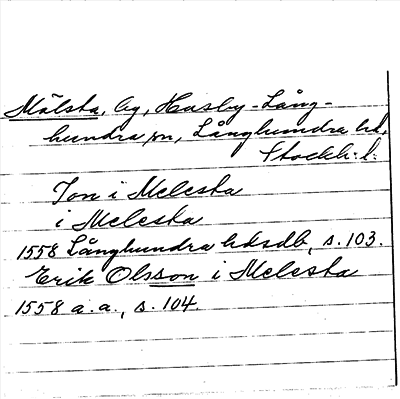 Mälsta, by, Husby-Lång-
hundra sn, Långhundra hd,
Stockh:l:
Jon i Melesta
i Melesta
1558 Långhundra hdsdb, s. 103.
Erik Olsson i Melesta
1558 a.a., s. 104.